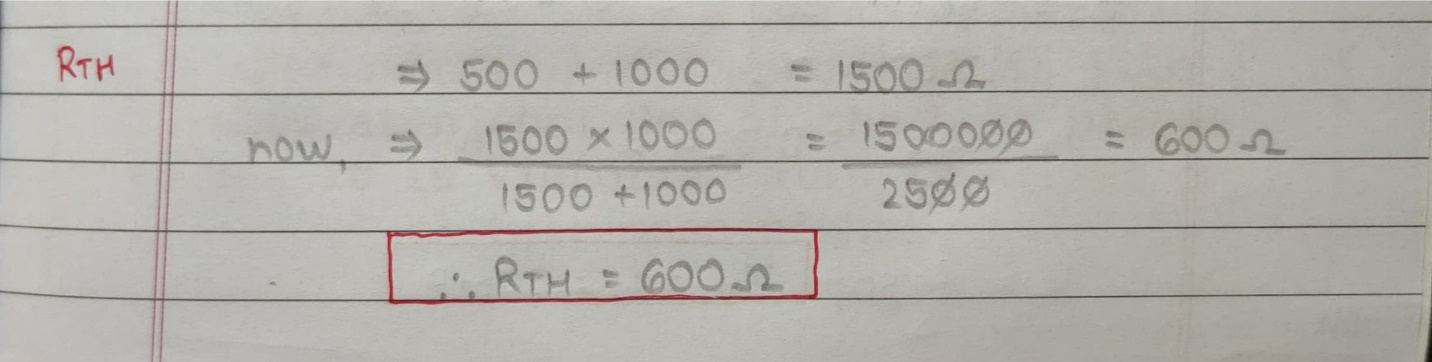 RTH ⇒ 500 + 1000 = 1500 Ω
now, ⇒ 1500 × 1000 / 1500 + 1000 = 1500000 / 2500 = 600 Ω
∴ RTH = 600 Ω